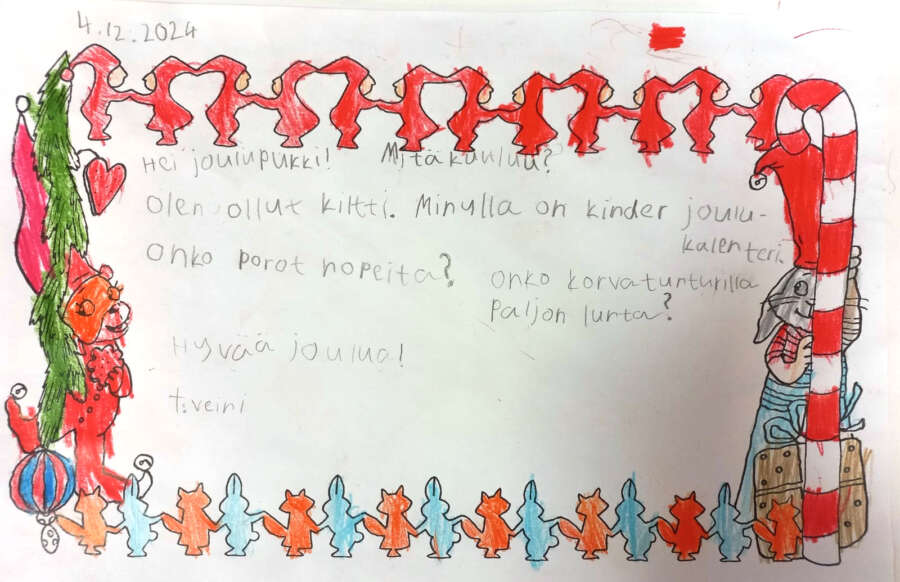 4.12.2024
Hei joulupukki! Mitä kuuluu?
olen ollut kiltti. Minulla on kinder joulu-
kalenteri.
onko porot nopeita?
onko korvatunturilla
paljon lunta?
Hyvää joulua!
t:veini